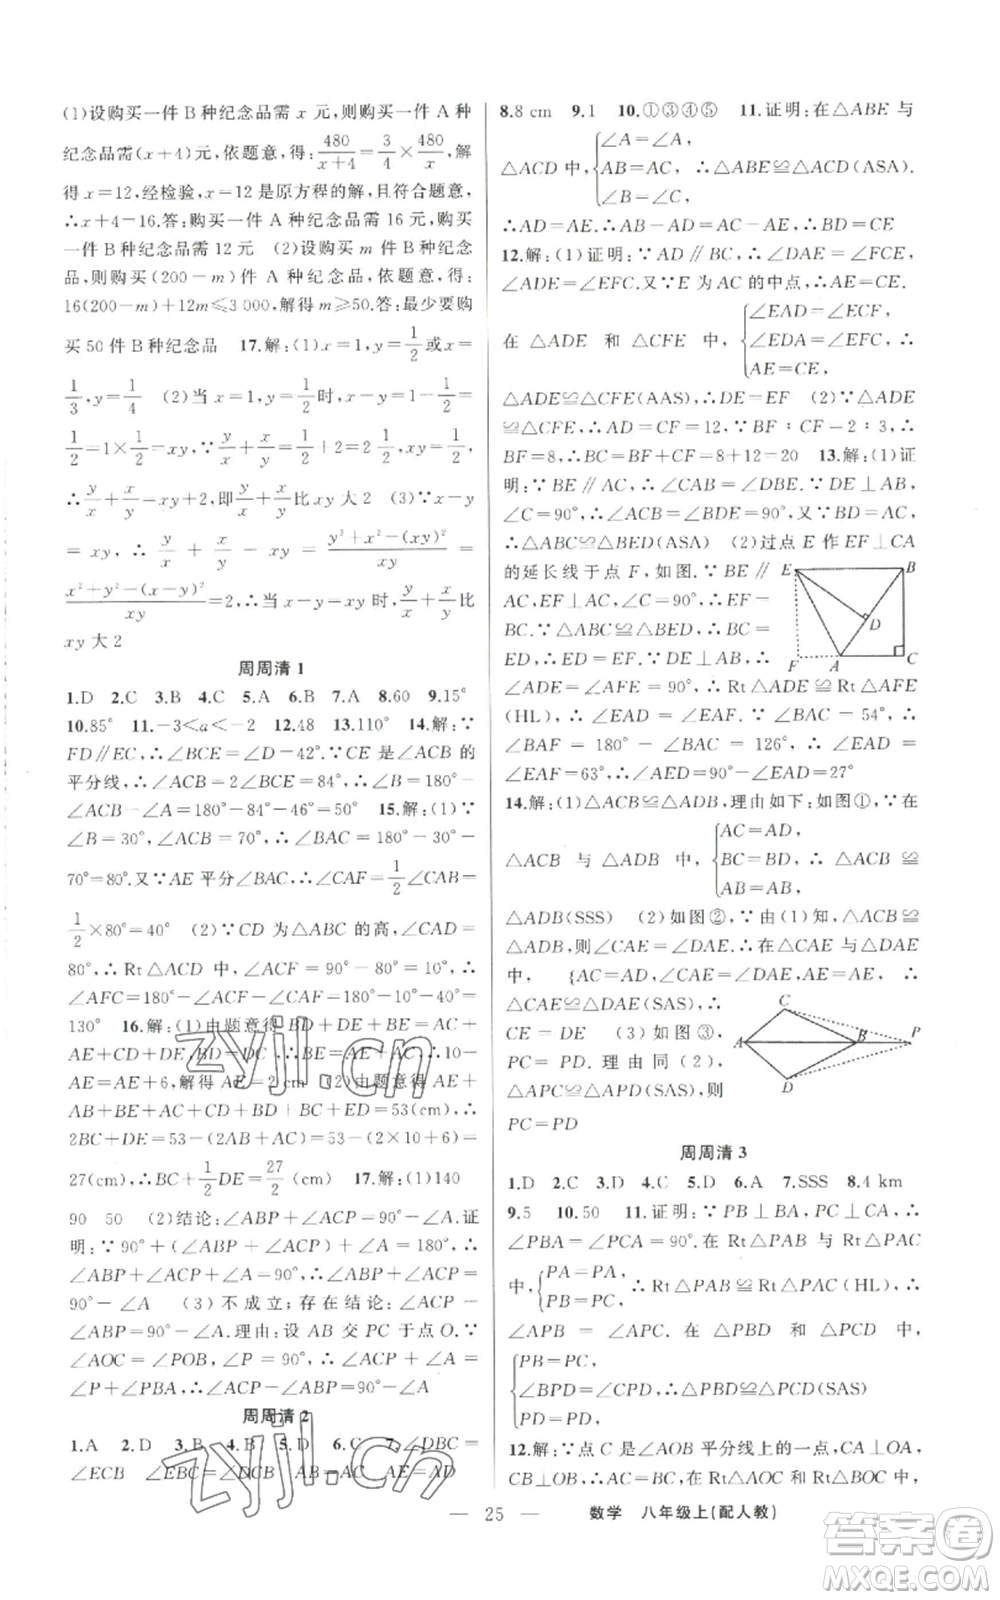 (1)设购买一件 B 种纪念品需 x 元,则购买一件 A 种
纪念品需(x+4)元,依题意,得:480/(x+4)=3/4×480/x,解
得 x=12,经检验,x=12 是原方程的解,且符合题意,
∴x+4=16.答:购买一件 A 种纪念品需 16 元,购买
一件 B 种纪念品需 12 元 (2)设购买 m 件 B 种纪念
品,则购买(200-m)件 A 种纪念品,依题意,得:
16(200-m)+12m≤3 000,解得 m≥50.答:最少要购
买 50 件 B 种纪念品 17.解:(1)x=1,y=1/2或x=
1/3,y=1/4 (2)当 x=1,y=1/2时,y/x+x/y=1/2+1/(1/2),
1/2=1×1/2=xy,∵y/x+x/y=1/2+2=1/2×1+2=xy+2,
∴y/x+x/y=xy+2,即y/x+x/y比 xy 大 2 (3)∵x-y
=xy,∴y/x+x/y-xy=(y²+x²-(xy)²)/xy=
(x²+y²-(x-y)²)/xy=2,∴当 x-y=xy 时,y/x+x/y比
xy 大 2
周周清 1
1.D 2.C 3.B 4.C 5.A 6.B 7.A 8.60 9.15°
10.85° 11.-3<a<-2 12.48 13.110° 14.解:∵
FD∥EC,∴∠BCE=∠D=42°.∵CE 是∠ACB 的
平分线,∴∠ACB=2∠BCE=84°,∴∠B=180°-
∠ACB-∠A=180°-84°-46°=50° 15.解:(1)∵
∠B=30°,∠ACB=70°,∴∠BAC=180°-30°-
70°=80°.又∵AE 平分∠BAC,∴∠CAF=1/2∠CAB=
1/2×80°=40° (2)∵CD 为△ABC 的高,∠CAD=
80°,∴Rt△ACD 中,∠ACF=90°-80°=10°,∴
∠AFC=180°-∠ACF-∠CAF=180°-10°-40°=
130° 16.解:(1)由题意得 BD+DE+BE=AC+
AE+CD+DE.∵BD=DC,∴BE=AC+AE,∴10-
AE=AE+6,解得 AE=2 cm (2)由题意得 AE+
AB+BE+AC+CD+BD+BC+ED=53(cm),∴
2BC+DE=53-(2AB+AC)=53-(2×10+6)=
27(cm),∴BC+1/2DE=27/2(cm) 17.解:(1)140
90 50 (2)结论:∠ABP+∠ACP=90°-∠A.证
明:∵90°+(∠ABP+∠ACP)+∠A=180°,∴
∠ABP+∠ACP+∠A=90°,∴∠ABP+∠ACP=
90°-∠A (3)不成立;存在结论:∠ACP-
∠ABP=90°-∠A.理由:设 AB 交 PC 于点 O.∵
∠AOC=∠POB,∠P=90°,∴∠ACP+∠A=
∠P+∠PBA,∴∠ACP-∠ABP=90°-∠A
周周清 2
1.A 2.D 3.B 4.B 5.D 6.C 7.∠DBC=
∠ECB ∠EBC=∠DCB AE=AD
8.8 cm 9.1 10.①③④⑤ 11.证明:在△ABE 与
△ACD 中,{∠A=∠A, AB=AC, ∠B=∠C, ∴△ABE≌△ACD(ASA).
∴AD=AE.∴AB-AD=AC-AE,∴BD=CE
12.解:(1)证明:∵AD∥BC,∴∠DAE=∠FCE,
∠ADE=∠EFC.又∵E 为 AC 的中点,∴AE=CE.
在△ADE 和△CFE 中,{∠EAD=∠ECF, ∠EDA=∠EFC, AE=CE, ∴
△ADE≌△CFE(AAS),∴DE=EF (2)∵△ADE
≌△CFE,∴AD=CF=12,∵BF∶CF=2∶3,∴
BF=8,∴BC=BF+CF=8+12=20 13.解:(1)证
明:∵BE∥AC,∴∠CAB=∠DBE.∵DE⊥AB,
∠C=90°,∴∠C=∠BDE=90°,又∵BD=AC,
∴△ACB≌△BED(ASA) (2)过点 E 作 EF⊥CA
的延长线于点 F,如图.∵BE∥
AC,EF⊥AC,∠C=90°,∴EF=
BC.∵△ACB≌△BDE,∴BC=
ED,∴ED=EF.∵∠EDA=
∠EFA=90°,∴Rt△ADE≌Rt△AFE
(HL),∴∠EAD=∠EAF.∵∠BAC=54°,∴
∠BAF=180°-∠BAC=126°,∴∠EAD=
∠EAF=63°,∴∠DEA=90°-∠EAD=27°
14.解:(1)△ACB≌△ADB,理由如下:如图①,∵在
△ACB 与△ADB 中,{AC=AD, BC=BD, AB=AB, ∴△ACB≌
△ADB(SSS) (2)如图②,∵由(1)知,△ACB≌
△ADB,则∠CAE=∠DAE.∴在△CAE 与△DAE
中, {AC=AD,∠CAE=∠DAE,AE=AE, ∴
△CAE≌△DAE(SAS),∴
CE=DE (3)如图③,
PC=PD.理由同(2),
△APC≌△APD(SAS),则
PC=PD
E B D F A C
C A B P D
周周清 3
1.D 2.C 3.D 4.C 5.D 6.A 7.SSS 8.4 km
9.5 10.50 11.证明:∵PB⊥BA,PC⊥CA,∴
∠PBA=∠PCA=90°.在 Rt△PAB 和 Rt△PAC
中,{PA=PA, PB=PC, ∴Rt△PAB≌Rt△PAC(HL),∴
∠APB=∠APC.在△PBD 和△PCD 中,
{PB=PC, ∠BPD=∠CPD, PD=PD, ∴△PBD≌△PCD(SAS)
12.解:∵点 C 是∠AOB 平分线上的一点,CA⊥OA,
CB⊥OB,∴CA=CB.在 Rt△AOC 和 Rt△BOC 中,
— 25 —
数学 八年级上(配人教)
zyjl.cn
zyjl.cn
答案圈
MXQE.COM